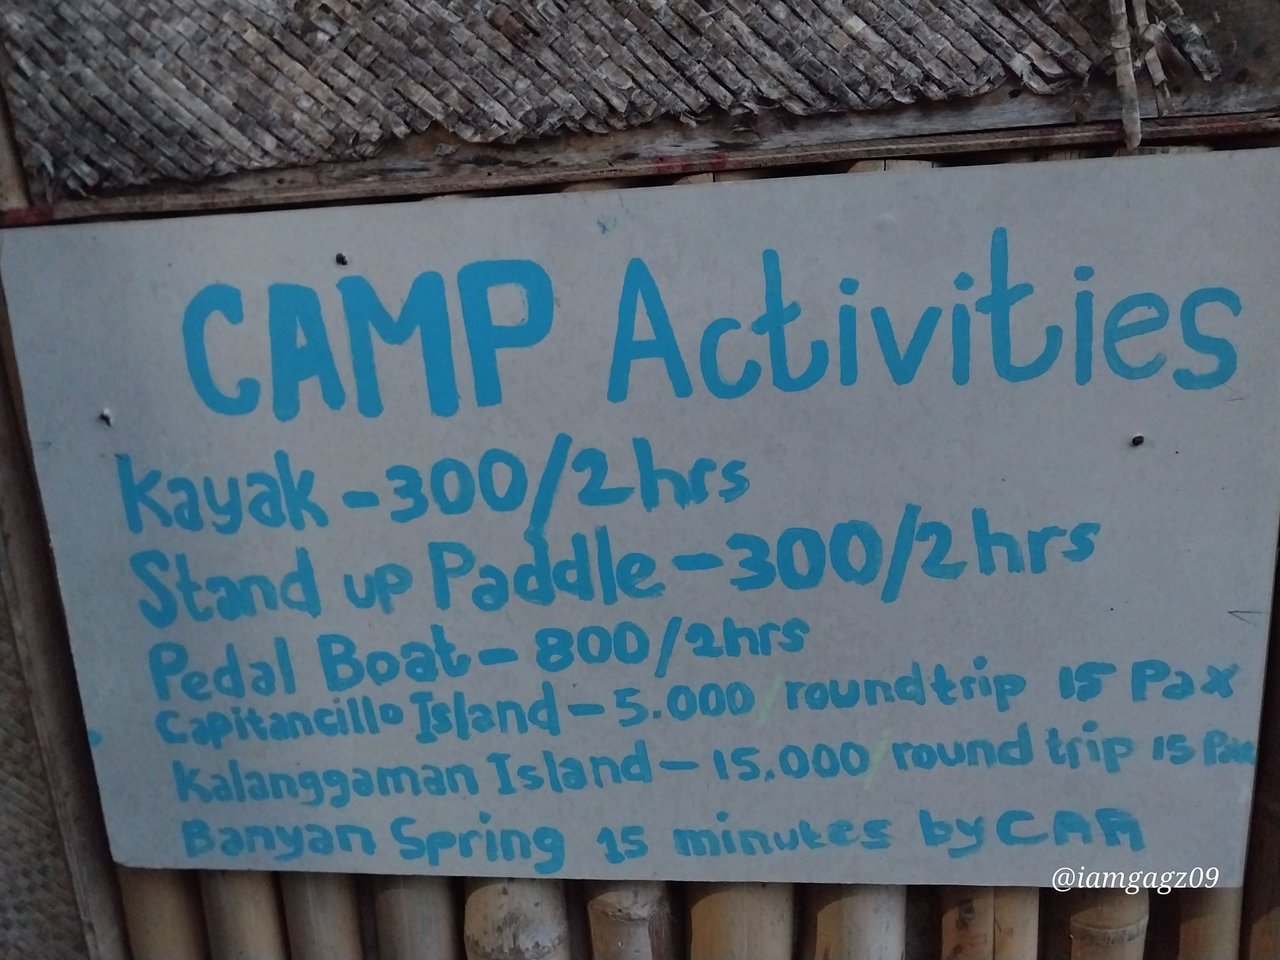 CAMP Activities
Kayak - 300/2hrs
Stand up Paddle - 300/2hrs
Pedal Boat - 800/2hrs
Capitancillo Island - 5.000/roundtrip 15 Pax
Kalanggaman Island - 15.000/round trip 15 Pax
Banyan Spring 15 minutes by CAR
@iamgagz09